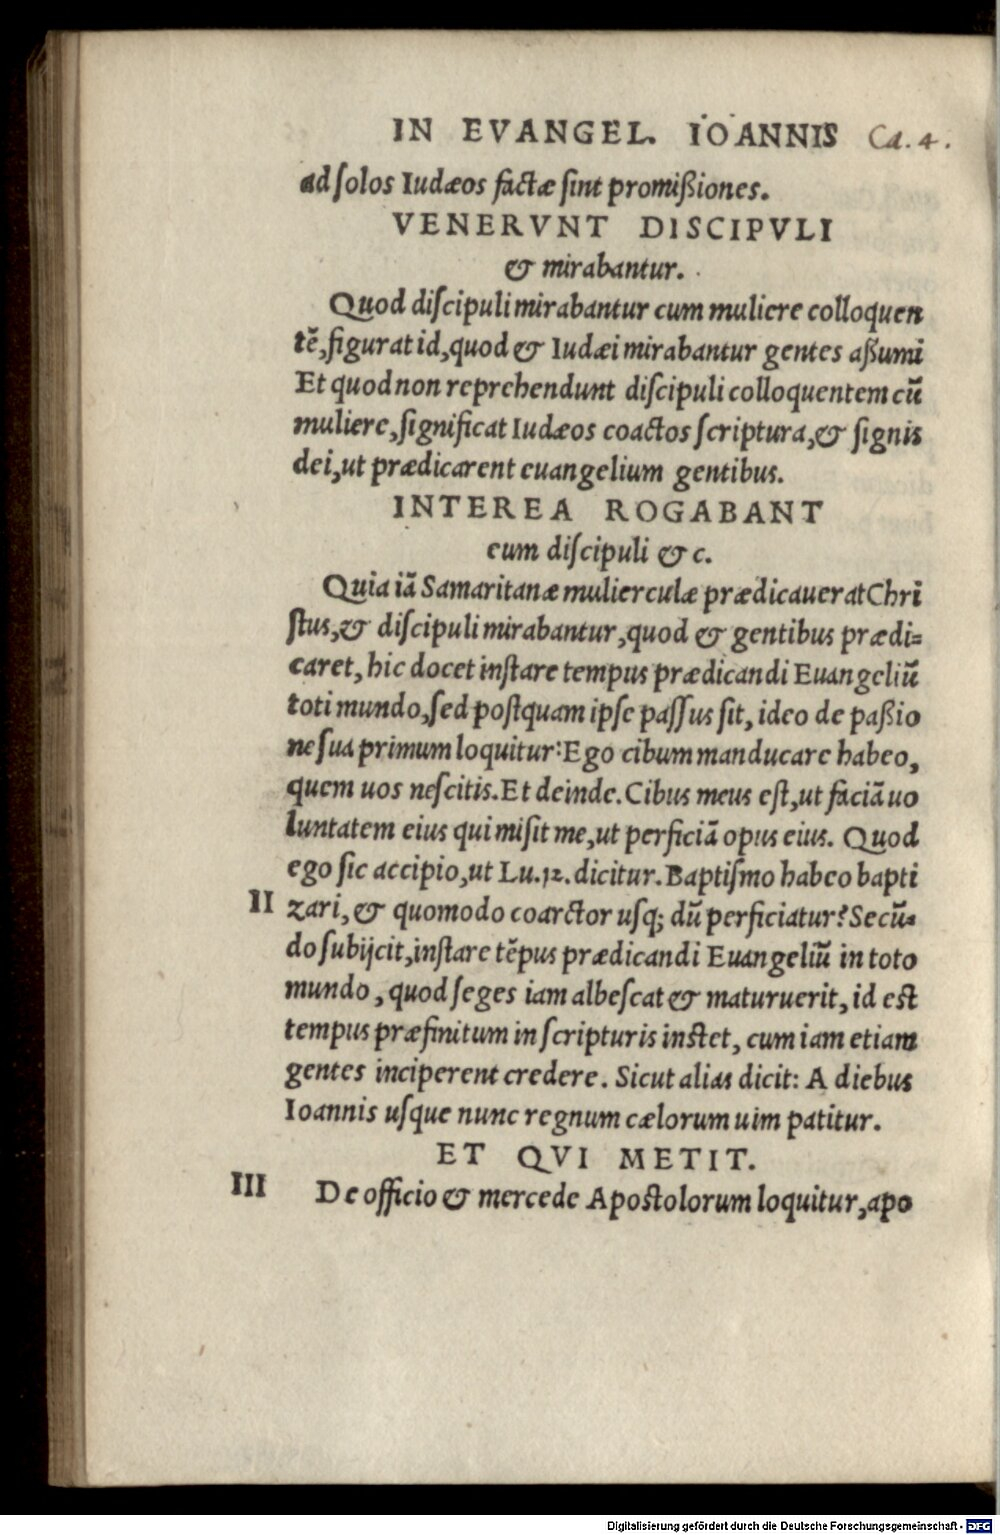 IN EVANGEL. IOANNIS Ca. 4.
ad ſolos Iudæos factæ ſint promißiones.
VENERVNT DISCIPVLI
& mirabantur.
Quod diſcipuli mirabantur cum muliere colloquen
tē, figurat id, quod & Iudæi mirabantur gentes aßumi
Et quod non reprehendunt diſcipuli colloquentem cū
muliere, ſignificat Iudæos coactos ſcriptura, & ſignis
dei, ut prædicarent euangelium gentibus.
INTEREA ROGABANT
eum diſcipuli & c.
Quia iā Samaritanæ mulierculæ prædicauerat Chri
ſtus, & diſcipuli mirabantur, quod & gentibus prædi=
caret, hic docet inſtare tempus prædicandi Euangeliū
toti mundo, ſed poſtquam ipſe paſſus ſit, ideo de paßio
ne ſua primum loquitur: Ego cibum manducare habeo,
quem uos neſcitis. Et deinde. Cibus meus eſt, ut faciā uo
luntatem eius qui miſit me, ut perficiā opus eius. Quod
ego ſic accipio, ut Lu. 12. dicitur. Baptiſmo habeo bapti
II zari, & quomodo coarctor uſq; dū perficiatur? Secū=
do ſubijcit, inſtare tēpus prædicandi Euangeliū in toto
mundo, quod ſeges iam albeſcat & maturuerit, id eſt
tempus præfinitum in ſcripturis inſtet, cum iam etiam
gentes inciperent credere. Sicut alias dicit: A diebus
Ioannis uſque nunc regnum cælorum uim patitur.
ET QVI METIT.
III De officio & mercede Apoſtolorum loquitur, apo
Digitalisierung gefördert durch die Deutsche Forschungsgemeinschaft - DFG